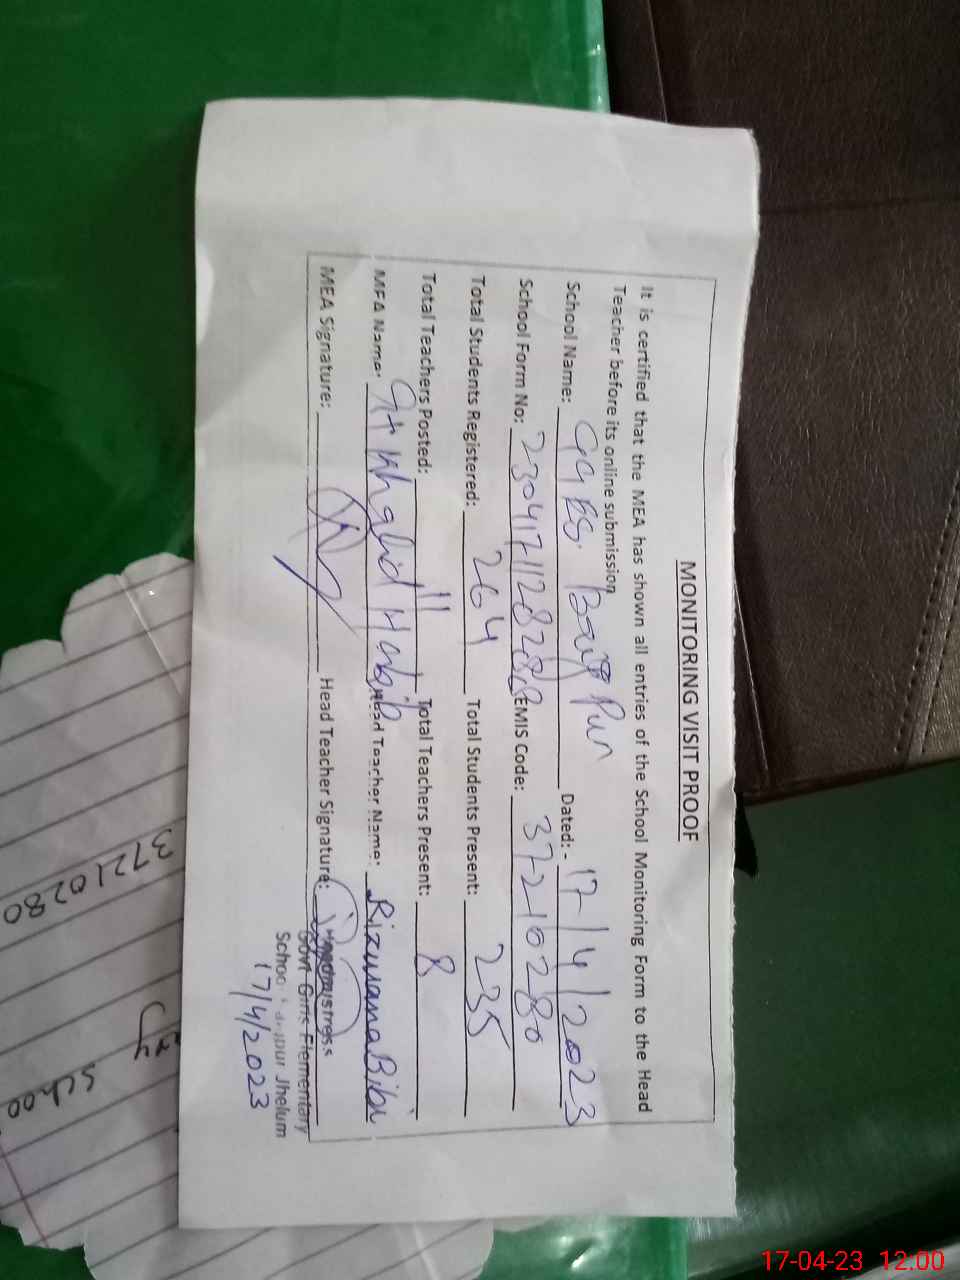 MONITORING VISIT PROOF
It is certified that the MEA has shown all entries of the School Monitoring Form to the Head
Teacher before its online submission
School Name: Pur Dated:- 17/4/2023
School Form No: EMIS Code: 37210280
Total Students Registered: 264 Total Students Present: 235
Total Teachers Posted: 11 Total Teachers Present: 8
MEA Name: Khalid Habib Head Teacher Name: Rizwana Bibi
MEA Signature: Head Teacher Signature:
Headmistress
Govt Girls Elementary
School Jhelum
17/4/2023
37210280
schoo
17-04-23 12:00